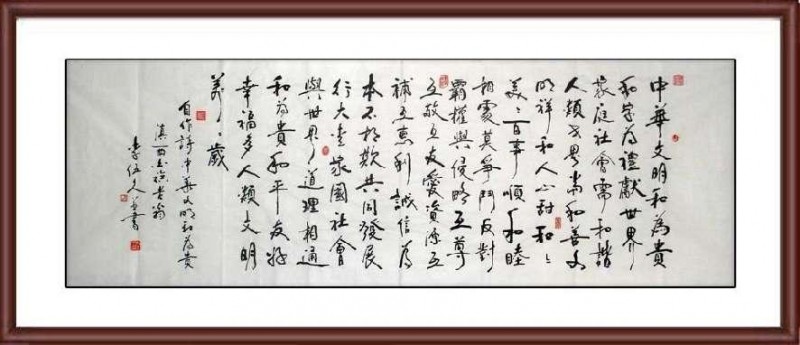 中華文明和為貴
和字為禮獻世界
家庭社會需和諧
人類尚和善文
明祥和人心甜和〻
美〻百事順和睦
相處莫爭鬥反對
霸權與侵略互尊
互敬互友愛資源互
補互惠利誠信為
本不相欺共同發展
行大家國社會
與世界道理相通
和為貴和平友好
幸福多人類文明
美〻歲
自作詩中華文明和為貴
滇西老翁
李伍久書